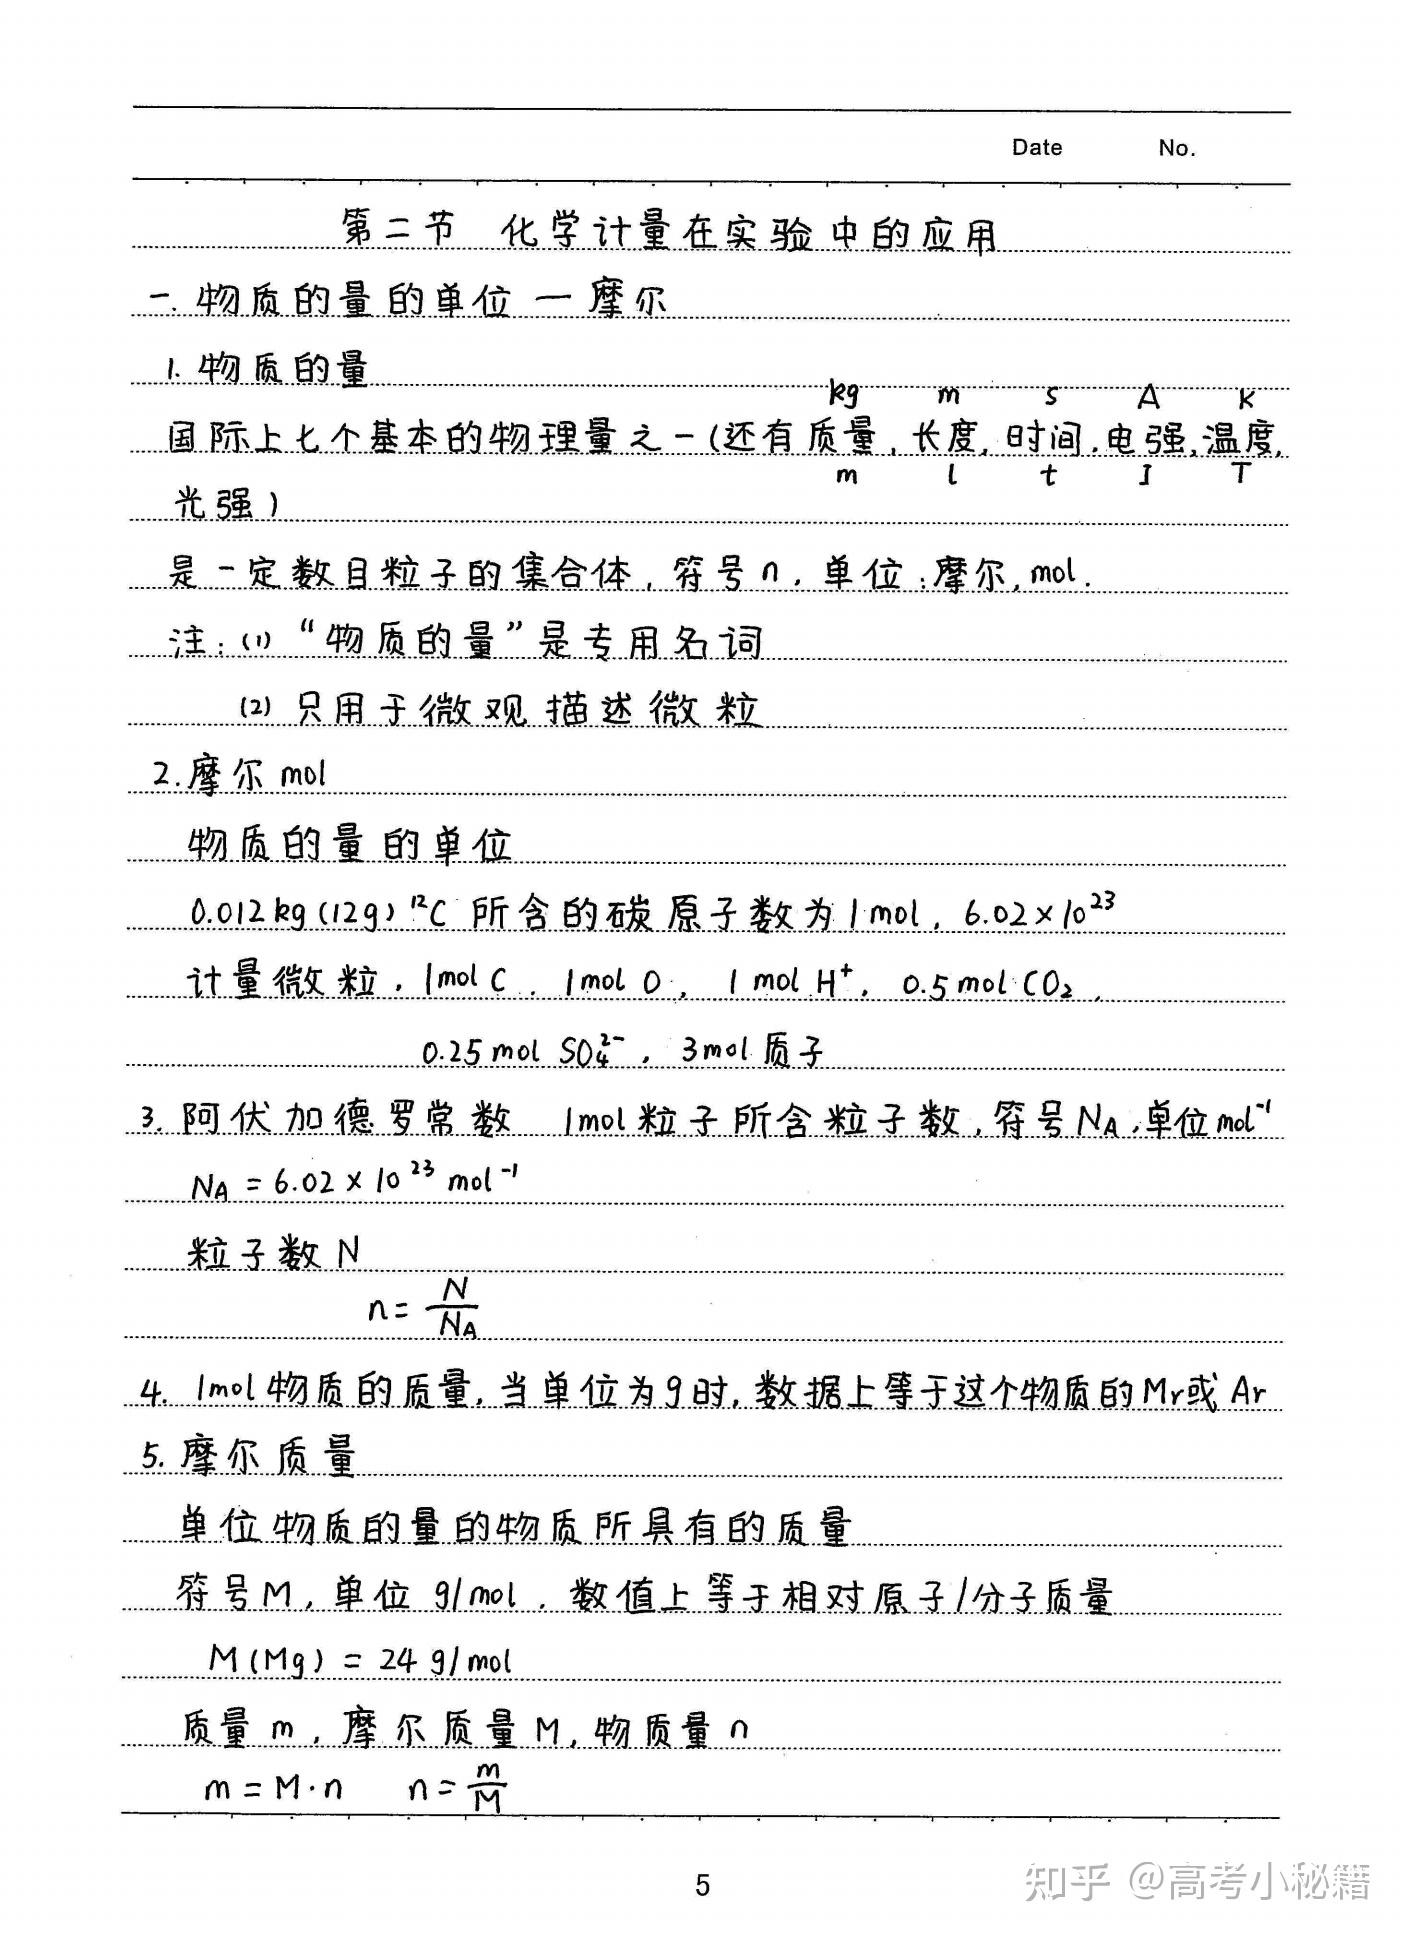 Date No.
第二节 化学计量在实验中的应用
一.物质的量的单位 — 摩尔
1.物质的量
kg m s A K
国际上七个基本的物理量之一(还有质量,长度,时间,电强,温度,
m l t I T
光强)
是一定数目粒子的集合体,符号n,单位:摩尔,mol.
注:(1) “物质的量”是专用名词
(2) 只用于微观描述微粒
2.摩尔 mol
物质的量的单位
0.012kg(12g) ¹²C 所含的碳原子数为1mol, 6.02×10²³
计量微粒, 1mol C, 1mol O, 1 mol H⁺, 0.5mol CO₂,
0.25 mol SO₄²⁻, 3mol 质子
3. 阿伏加德罗常数 1mol粒子所含粒子数,符号NA,单位mol⁻¹
NA = 6.02×10²³ mol⁻¹
粒子数 N
n= N/NA
4. 1mol物质的质量,当单位为g时,数据上等于这个物质的Mr或Ar
5.摩尔质量
单位物质的量的物质所具有的质量
符号M,单位 g/mol, 数值上等于相对原子/分子质量
M(Mg) = 24 g/mol
质量 m,摩尔质量 M,物质量 n
m = M·n n= m/M
5
知乎 @高考小秘籍